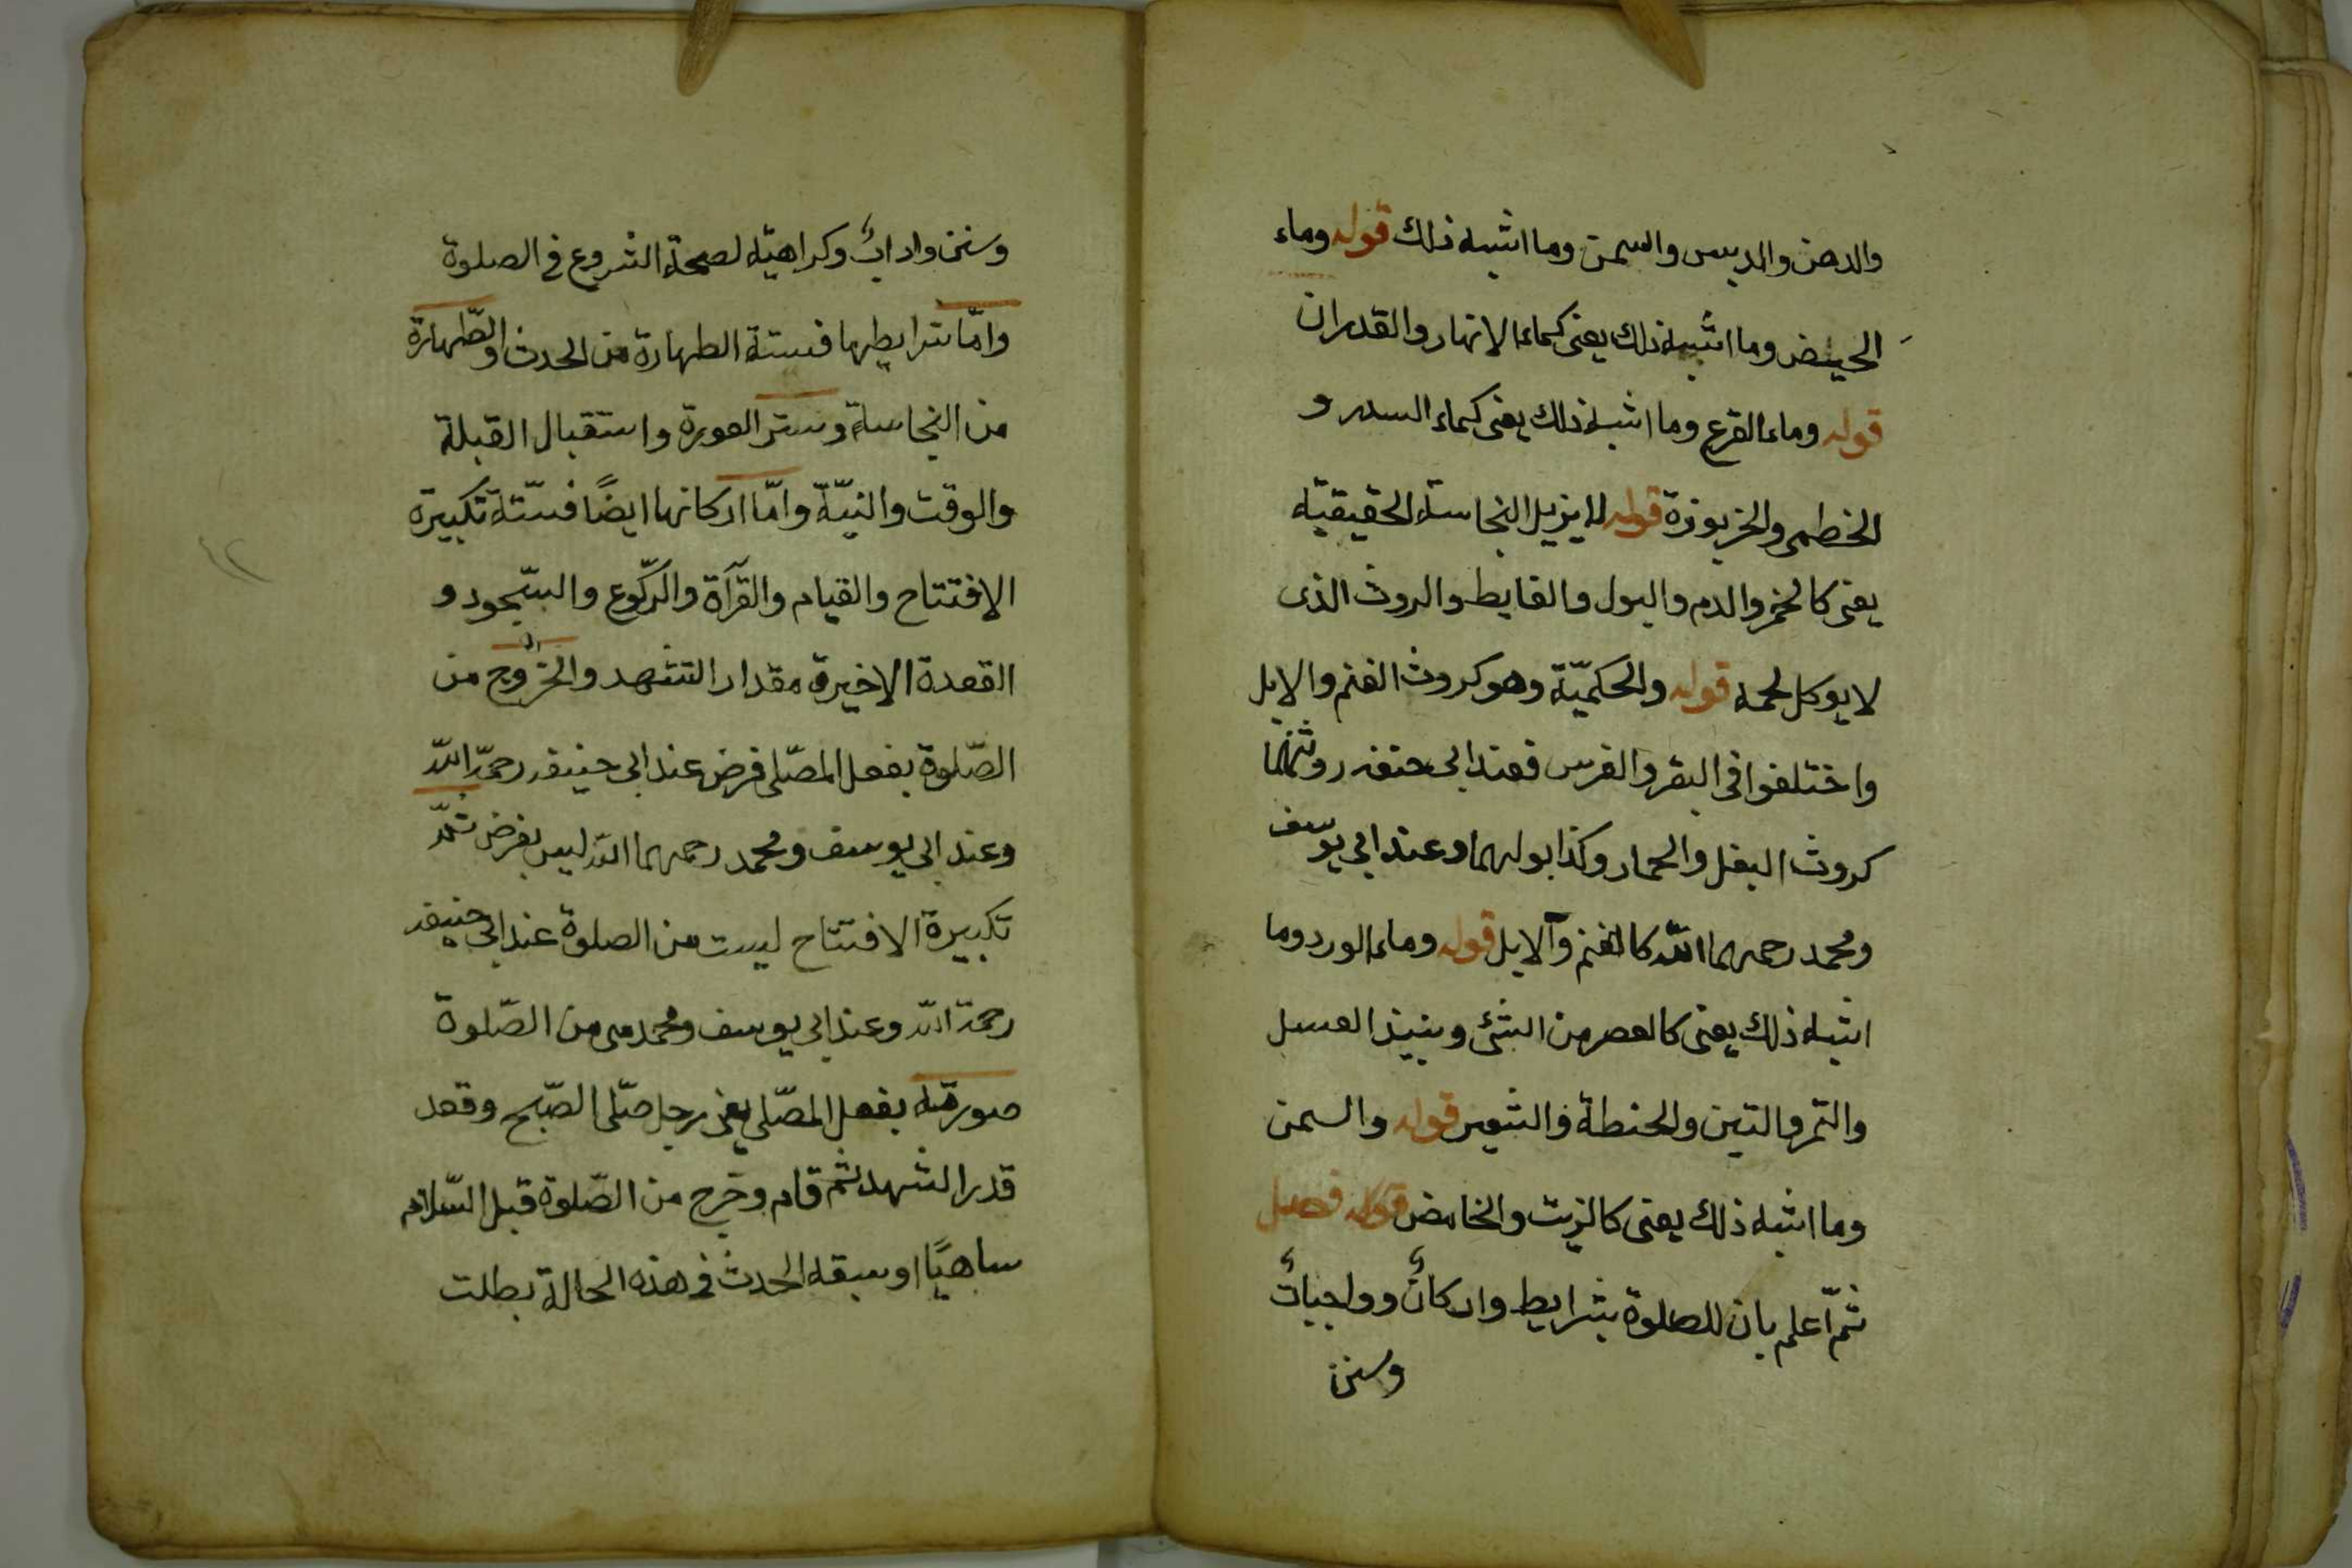 والدهن والدبس والسمن وما اشبه ذلك قوله وماء
الحيض وما اشبه ذلك يعنى كماء الانهار والقدران
قوله وماء القرع وما اشبه ذلك يعنى كماء السدر و
الخطمى والخربوزة قوله لا يزيل النجاسة الحقيقيّة
يعنى كالخمر والدم والبول والغايط والروث الذى
لا يوكل لحمه قوله والحكميّة وهو كروث الغنم والابل
واختلفوا فى البقر والفرس فعند ابى حنفه روثهما
كروث البغل والحمار وكذا بولهما وعند ابى يوسف
ومحمد رحمهما اللّه كالغنم والابل قوله وماء الورد وما
اشبه ذلك يعنى كالعصر من الشئ ونبيذ العسل
والتمر والتين والحنطة والشعير قوله والسمن
وما اشبه ذلك يعنى كالزيت والخامض قوله فصل
ثمّ اعلم بان للصلوة شرايط واركانٌ وواجباتٌ
وسنن
وسنن وادابٌ وكراهيّة لصحّة الشروع فى الصلوة
وامّا شرايطها فستة الطهارة من الحدث والطّهارة
من النجاسة وستر العورة واستقبال القبلة
والوقت والنيّة وامّا اركانها ايضًا فستّة تكبيرة
الافتتاح والقيام والقرآة والرّكوع والسّجود و
القعدة الاخيرة مقدار التشهد والخروج من
الصّلوة بفعل المصّلى فرض عند ابى حنيفه رحمة اللّه
وعند ابى يوسف ومحمد رحمهما اللّه ليس بفرض ثمّ
تكبيرة الافتتاح ليست من الصلوة عند ابى حنيفه
رحمة اللّه وعند ابى يوسف ومحمد هى من الصّلوة
صورته بفعل المصّلى يعنى رجل صلّى الصّبح وقعد
قدر التشهد ثم قام وخرج من الصّلوة قبل السّلام
ساهيًا او سبقه الحدث فى هذه الحالة بطلت
١٢